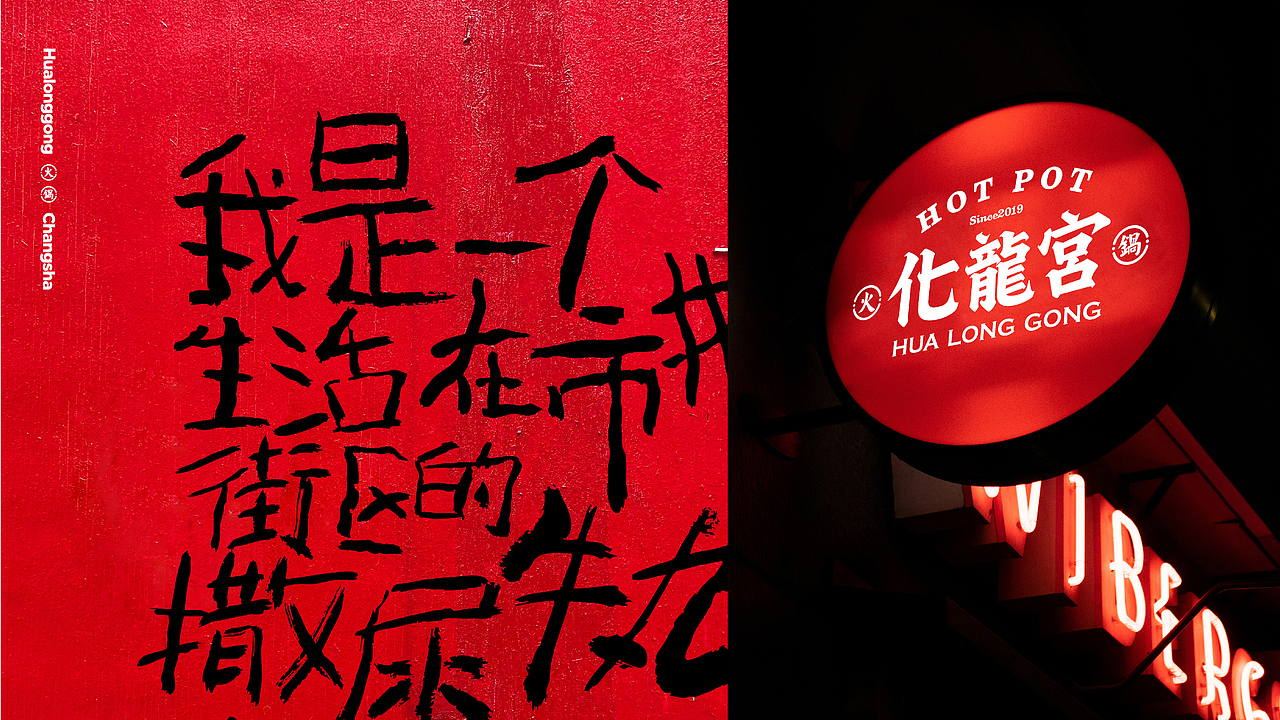 Hualonggong 火 鍋 Changsha
我是一个
生活在市
街区的
撒尿牛丸
HOT POT
Since2019
火 化龍宮 鍋
HUA LONG GONG